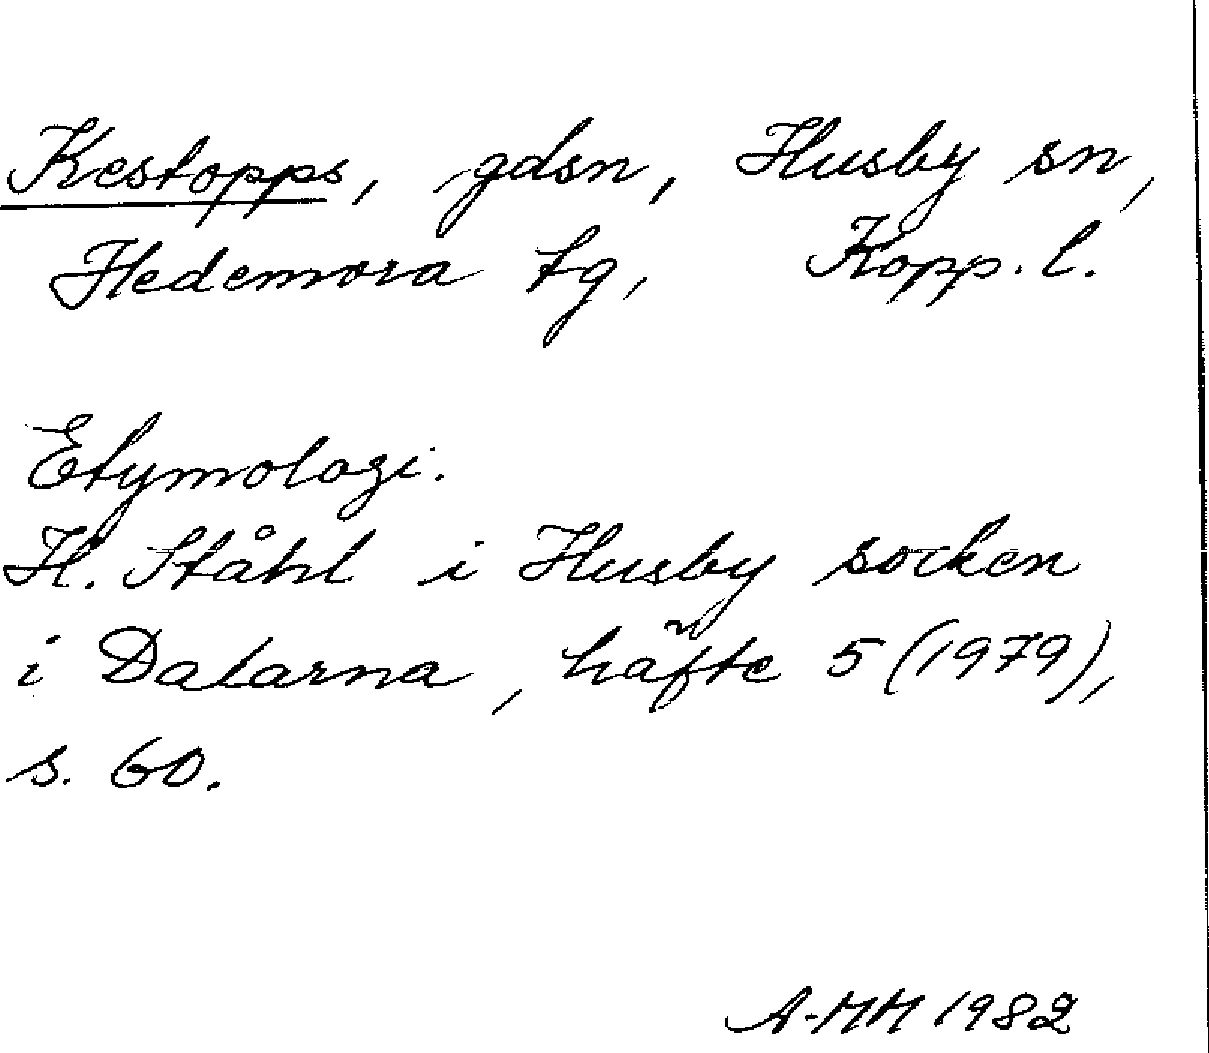 Kestopps, gdsn, Husby sn,
Hedemora tg, Kopp. l.
Etymologi.
H. Ståhl i Husby socken
i Dalarna, häfte 5 (1979),
s. 60.
A-MM 1982